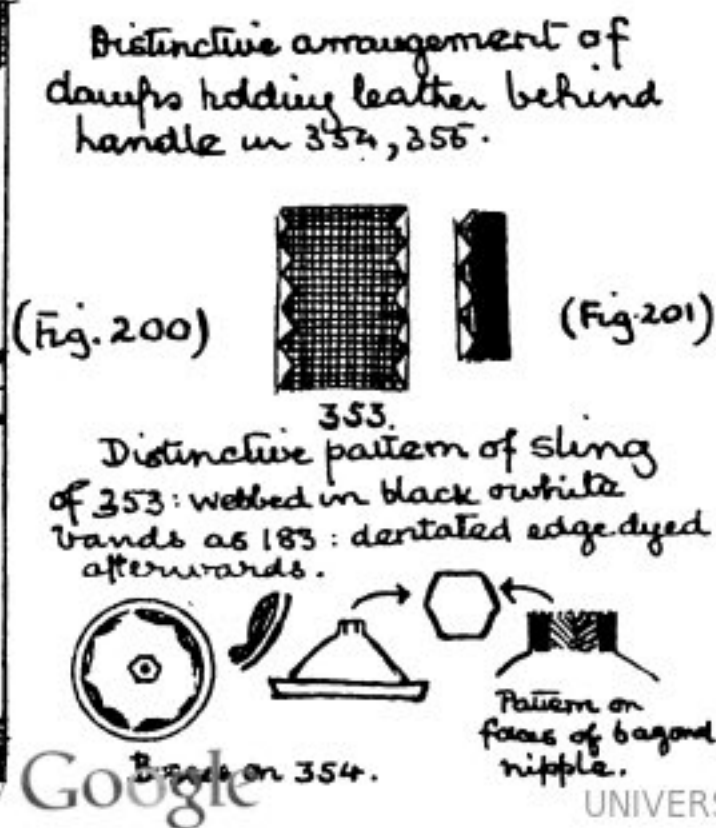 Distinctive arrangement of
damps holding leather behind
handle in 354, 355.
(Fig. 200)
(Fig. 201)
353.
Distinctive pattern of sling
of 353: webbed in black & white
bands as 183: dentated edge dyed
afterwards.
Pattern on
faces of hagonal
nipple.
on 354.
Google
UNIVERS